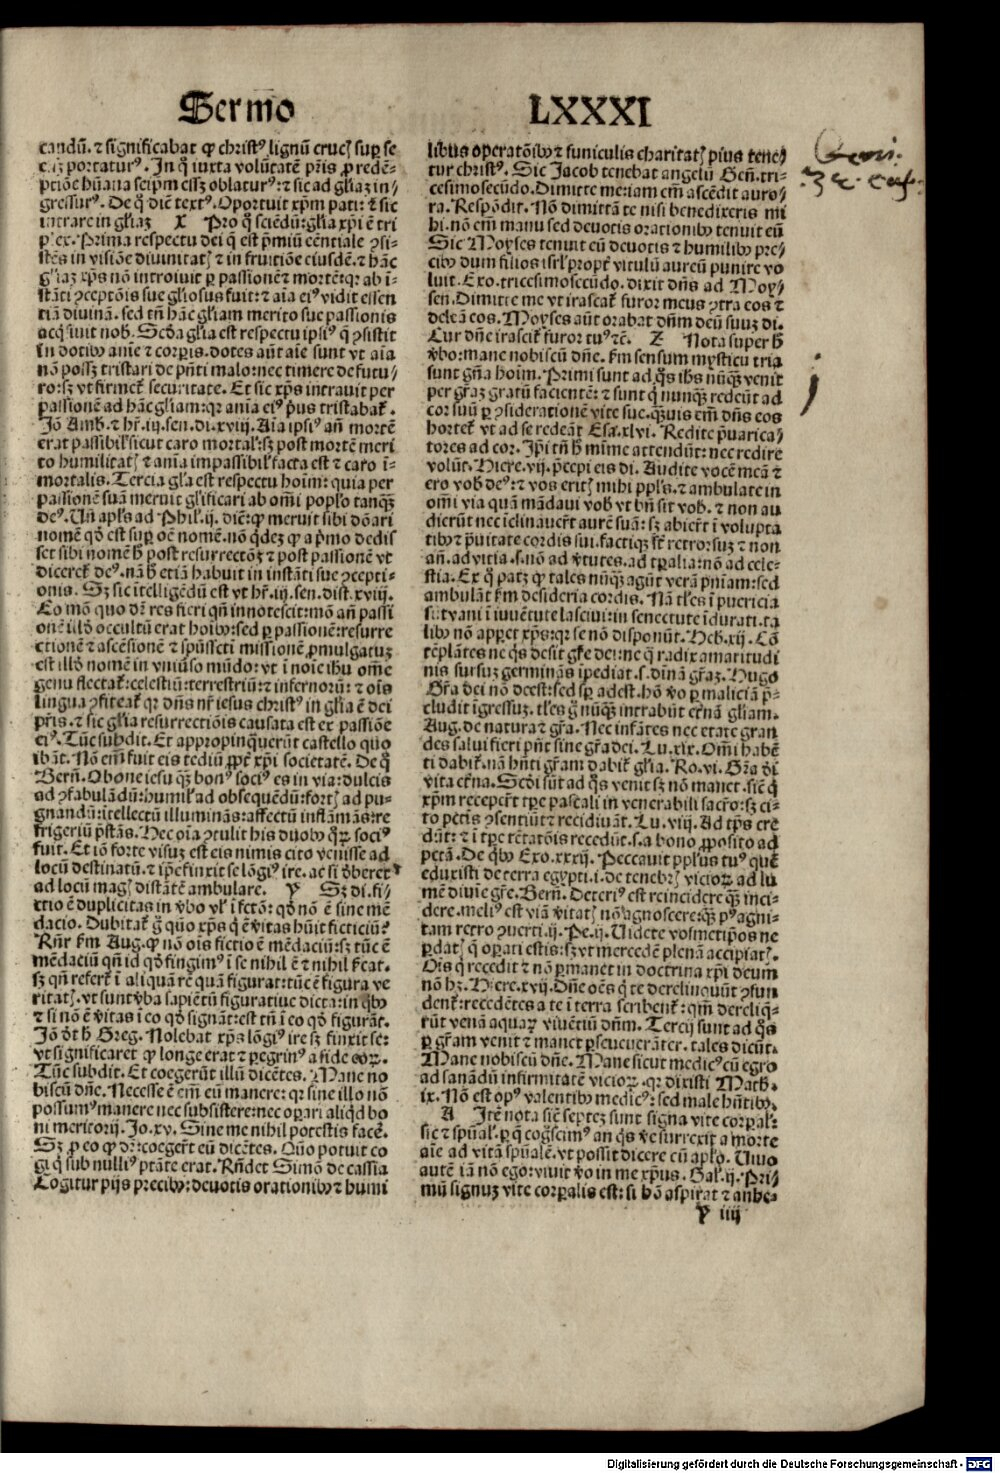 Sermo LXXXI
candū. ⁊ significabat ꝙ christꝰ lignū crucꝭ suꝑ se
portaturꝰ. In q̄ iuxta volūtatē pr̄is ꝓ redē-
ptiōe hūana seip̄m eēt oblaturꝰ: ⁊ sic ad gl̄iaꝫ in/
gressurꝰ. De q̄ diē textꝰ. Oportuit xp̄m pati: ⁊ sic
intrare in gl̄iaꝫ X Pro q̄ sciēdū: gl̄ia xp̄i ē tri
plex. Prima respectu dei q̄ est p̄miū eēntiale ↄsi-
stēs in visiōe diuinitatꝭ ⁊ in fruitiōe eiusdē. ⁊ hāc
gl̄iaꝫ xp̄s nō introiuit ꝑ passionē ⁊ mortē: qꝛ ab ī-
stāti ↄceptōis sue gl̄iosus fuit: ⁊ aīa eiꝰ vidit essen
tiā diuinā. sed tn̄ hāc gl̄iam merito sue passionis
acq̄siuit nob̄. Scd̄a gl̄ia est respectu ipsiꝰ q̄ ↄsistit
in dotibꝰ anīe ⁊ corꝑis. dotes aūt aīe sunt vt aīa
nō possꝫ tristari de p̄nti malo: nec timere de futu/
ro: sꝫ vt firmeƭ securitate. Et sic xp̄s intrauit per
passionē ad hāc gl̄iam: qꝛ anīa eiꝰ p̄us tristabaƭ.
Iō Amb. ⁊ hr̄. iij. sen. di. xviij. Aīa ipsiꝰ an̄ mortē
erat passibil̓ sicut caro mortal̓: sꝫ post mortē meri
to humilitatꝭ ⁊ anīa impassibil̓ facta est ⁊ caro ī-
mortalis. Tercia gl̄a est respectu hoīm: quia per
passionē suā meruit gl̄ificari ab om̄i popl̓o tanqꝫ
deꝰ. Vn̄ apl̓s ad Phil̓. ij. diē: ꝙ meruit sibi dōari
nomē qd̄ est suꝑ oē nomē. nō q̄deꝫ ꝙ a p̄mo dedis
set sibi nomē h̄ post resurrectōꝫ ⁊ post passionē vt
dicereƭ deꝰ. nā h̄ etiā habuit in instāti sue ↄcepti-
onis. Sꝫ sic ītelligēdū est vt hr̄. iij. sen. dist. xviij.
Eo mō quo dr̄ res fieri qn̄ innotescit: mō an̄ passi
onē illd̄ occultū erat hoībꝰ: sed ꝑ passionē: resurre
ctionē ⁊ ascēsionē ⁊ spūssc̄ti missionē ꝓmulgatuꝫ
est illd̄ nomē in vniūso mūdo: vt ī noīe ihu om̄e
genu flectaƭ: celestiū: terrestriū: ⁊ infernorū: ⁊ oīs
lingua ↄfiteaƭ qꝛ dn̄s nr̄ iesus christꝰ in gl̄ia ē dei
pr̄is. ⁊ sic gl̄ia resurrectiōis causata est ex passiōe
eiꝰ. Tūc subdit. Et appropinq̄uerūt castello quo
ibāt. Nō em̄ fuit eis tediū ꝓpƭ xp̄i societatē. De q̄
Bern̄. O bone iesu qꝫ bonꝰ sociꝰ es in via: dulcis
ad ↄfabulādū: humil̓ ad obsequēdū: fortꝭ ad pu-
gnandū: ītellectū illuminās: affectū inflāmās: re
frigeriū p̄stās. Hec oīa ↄtulit his duobꝰ qꝛ sociꝰ
fuit. Et iō forte visuꝫ est eis nimis cito venisse ad
locū destinatū. ⁊ ip̄e finxit se lōgiꝰ ire. ac si dēberet
ad locū magꝭ distātē ambulare. Y Sꝫ di. fi-
ctio ē duplicitas in v̄bo vl̓ ī fctō: qd̄ nō ē sine mē
dacio. Dubitaƭ ḡ quo xp̄s q̄ ē v̄itas hūit ficticiū?
Rn̄r fm̄ Aug. ꝙ nō oīs fictio ē mēdaciū: sꝫ tūc ē
mēdaciū qn̄ id qd̄ fingimꝰ ī se nihil ē ⁊ nihil fc̄at.
sꝫ qn̄ referƭ ī aliquā rē quā figurat: tūc ē figura ve
ritatꝭ. vt sunt v̄ba sapiētū figuratiue dicta: in qbꝰ
⁊ si nō ē v̄itas ī eo qd̄ signāt: est tn̄ ī eo qd̄ figurāt.
Iō dt̄ b̄ Greg. Nolebat xp̄s lōgiꝰ ire sꝫ finxit se:
vt significaret ꝙ longe erat ⁊ peregrinꝰ a fide eoꝝ.
Tūc subdit. Et coegerūt illū dicētes. Mane no
biscū dn̄e. Necesse ē em̄ eū manere: qꝛ sine illo nō
possumꝰ manere nec subsistere: nec oꝑari aliqd bo
ni meritorij. Jo. xv. Sine me nihil potestis facē.
Sꝫ ꝓ eo ꝙ dr̄: coeger̄t eū dicētes. Quō potuit co
gi q̄ sub nulliꝰ ptāte erat. Rn̄det Simō de cassia
Cogitur pijs precibꝰ: deuotis orationibꝰ ⁊ humi
libus operatōibꝰ ⁊ funiculis charitatꝭ pius tene/
tur christꝰ. Sic Jacob tenebat angelū Gen̄. tri-
cesimosecūdo. Dimitte me: iam em̄ ascēdit auro/
ra. Respōdit. Nō dimittā te nisi benedixeris mi
hi. nō em̄ manu sed deuotis orationibꝰ tenuit eū
Sic Moyses tenuit eū deuotis ⁊ humilibꝰ pre/
cibꝰ dum filios isrl̓ propƭ vitulū aureū punire vo
luit. Exo. tricesimosecūdo. dixit dn̄s ad Moy/
sen. Dimitte me vt irascaƭ furor meus ↄtra eos ⁊
deleā eos. Moyses aūt orabat dn̄m deū suuꝫ di.
Cur dn̄e irasciƭ furor tuꝰ ⁊c̄. Z Nota super h̄
v̄bo: mane nobiscū dn̄e. fm̄ sensum mysticū tria
sunt gn̄a hoīm. Primi sunt ad q̄s ihs nūqꝫ venit
per gr̄aꝫ gratū facientē: ⁊ sunt q̄ nunqꝫ redeūt ad
cor suū ꝑ ↄsiderationē vite sue. qꝫuis em̄ dn̄s eos
horteƭ vt ad se redeāt Esa. xlvi. Redite p̄uarica/
tores ad cor. Ip̄i tn̄ h̄ mīme attendūt: nec redire
volūt. Hiere. vij. p̄cepi eis di. Audite vocē meā ⁊
ero vob̄ deꝰ: ⁊ vos eritꝭ mihi pplꝰs. ⁊ ambulate in
om̄i via quā mādaui vob̄ vt bn̄ sit vob̄. ⁊ non au
dierūt nec īclinauer̄t aurē suā: sꝫ abier̄t ī volupta
tibꝰ ⁊ p̄uitate cordis sui. factiqꝫ sƭ retrorsuꝫ ⁊ non
an̄. ad vitia. s. nō ad v̄tutes. ad tr̄alia: nō ad cele-
stia. Ex q̄ patꝫ ꝙ tales nūqꝫ agūt verā pn̄iam: sed
ambulāt fm̄ desideria cordis. Nā tl̄es ī puericia
sūt vani ī iuuētute lasciui: in senectute īdurati. ta
libꝰ nō apꝑet xp̄s: qꝛ se nō disponūt. Heb. xij. Cō
tēplātes ne q̄s desit gr̄e dei: ne q̄ radix amaritudi
nis sursuꝫ germinās īpediat. s. diuinā gr̄aꝫ. Hugo
Gr̄a dei nō deest: sed sꝑ adest. hō v̄o ꝑ maliciā p̄-
cludit īgressuꝫ. tl̄es ḡ nūqꝫ intrabūt et̄nā gl̄iam.
Aug. de natura ⁊ gr̄a. Nec infātes nec etate gran
des salui fieri pn̄t sine gr̄a dei. Lu. xix. Om̄i habē
ti dabiƭ. nā hn̄ti gr̄am: dabiƭ gl̄ia. Ro. vi. Gr̄a dei
vita et̄na. Scd̄i sūt ad q̄s venit sꝫ nō manet. sic̄ q̄
xp̄m receper̄t tp̄e pascali in venerabili sacr̄o: sꝫ ci-
to petīs ↄsentiūt ⁊ recidiuāt. Lu. viij. Ad tp̄s cre
dūt: ⁊ ī tp̄e tētatōis recedūt. s. a bono ꝓposito ad
pctā. De qbꝰ Exo. xxxij. Peccauit pplꝰs tuꝰ quē
eduxisti de terra egypti. i. de tenebrꝭ vicioꝝ ad lu
mē diuīe gr̄e. Bern̄. Deteriꝰ est reincidere qꝫ inci-
dere. meliꝰ est viā v̄itatꝭ nō agnoscere: qꝫ pꝰ agni-
tam retro ↄuerti. ij. Pe. ij. Videte vosmetip̄os ne
ꝑdatꝭ q̄ oꝑati estis: sꝫ vt mercedē plenā accipiatꝭ.
Oīs q̄ recedit ⁊ nō ꝑmanet in doctrina xp̄i deum
nō hꝫ. Hiere. xvij. Dn̄e oēs q̄ te derelinquūt ↄfun
denƭ: recedētes a te ī terra scribenƭ: qm̄ dereliq̄-
rūt venā aquaꝝ viuētiū dn̄m. Tercij sunt ad q̄s
ꝑ gr̄am venit ⁊ manet ꝑseueranter. tales dicūt.
Mane nobiscū dn̄e. Mane sicut medicꝰ cū egro
ad sanādū infirmitatē vicioꝝ. qꝛ dixisti Math.
ix. Nō est opꝰ valentibꝰ medicꝰ: sed male hn̄tibꝰ.
A Itē nota sic̄ septeꝫ sunt signa vite corꝑal̓:
sic ⁊ spūal̓. ꝑ q̄ coḡscimꝰ an q̄s v̄e surrexit a morte
aīe ad vitā spūalē. vt possit dicere cū apl̓o. Viuo
autē iā nō ego: viuit v̄o in me xp̄us. Gal̓. ij. Pri-
mū signuꝫ vite corꝑalis est: si hō aspirat ⁊ anhe-
P iiij
Digitalisierung gefördert durch die Deutsche Forschungsgemeinschaft - DFG